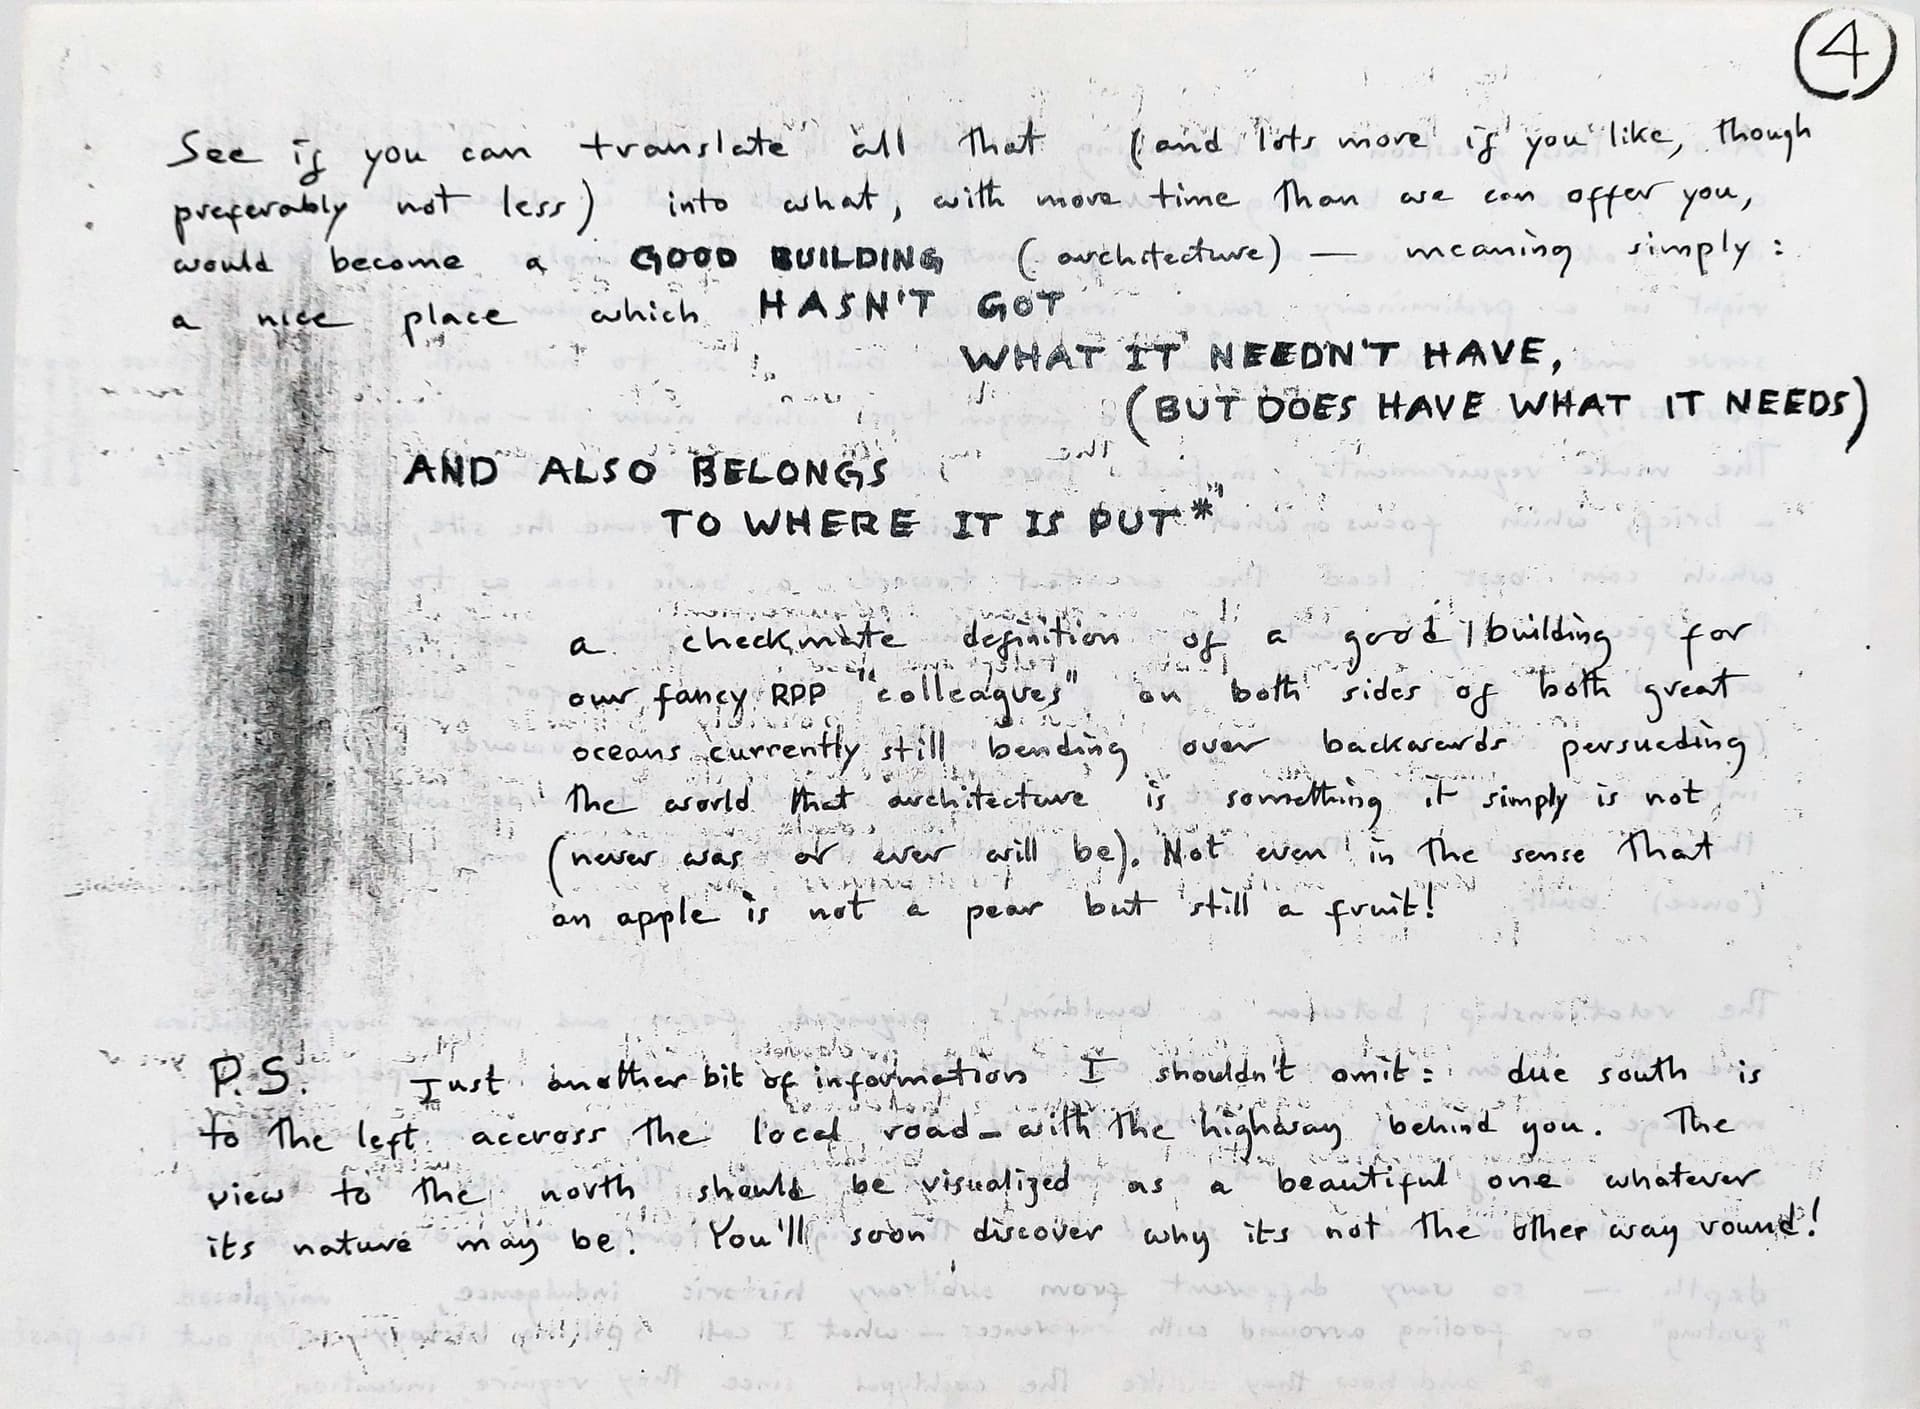 4
See if you can translate all that (and lots more if you like, though
preferably not less) into what, with more time than we can offer you,
would become a GOOD BUILDING (architecture) — meaning simply:
a nice place which HASN'T GOT
WHAT IT NEEDN'T HAVE,
(BUT DOES HAVE WHAT IT NEEDS)
AND ALSO BELONGS
TO WHERE IT IS PUT*
a checkmate definition of a good building for
our fancy RPP "colleagues" on both sides of both great
oceans currently still bending over backwards persueding
the world that architecture is something it simply is not
(never was or ever will be). Not even in the sense that
an apple is not a pear but still a fruit!
P.S. Just another bit of information I shouldn't omit: due south is
to the left accross the local road – with the highway behind you. The
view to the north should be visualized as a beautiful one whatever
its nature may be! You'll soon discover why its not the other way round!